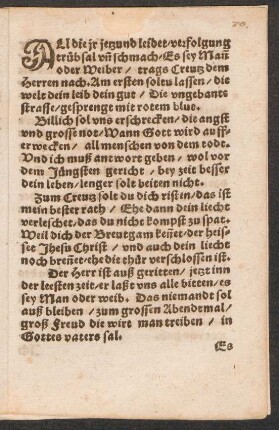 20.
ALl die jr jezund leidet verfolgung
trübsal vñ schmach / Es sey Mañ
oder Weiber / trags Creutz dem
Herren nach. Am ersten soltu lassen / die
welt dein leib dein gut / Die vngebante
strasse / gesprengt mit rotem blut.
Billich sol vns erschrecken / die angst
vnd grosse not / Wann Gott wird auff-
erwecken / all menschen von dem tode.
Vnd ich muß antwort geben / wol vor
dem Jüngsten gericht / bey zeit besser
dein leben / lenger solt beiten nicht.
Zum Creutz solt du dich risten / das ist
mein bester rath / Ehe dann dein liecht
verleschet / das du nicht kompst zu spat.
Weil dich der Breutgam keñet / der heis-
set Jhesu Christ / vnd auch dein liecht
noch breñet / ehe die thür verschlossen ist.
Der Herr ist auß geritten / jetzt inn
der leesten zeit / er laßt vns alle bitten / es
sey Man oder weib. Das niemandt sol
auß bleiben / zum grossen Abendtmal /
groß Freud die wirt man treiben / in
Gottes vaters sal.
Es